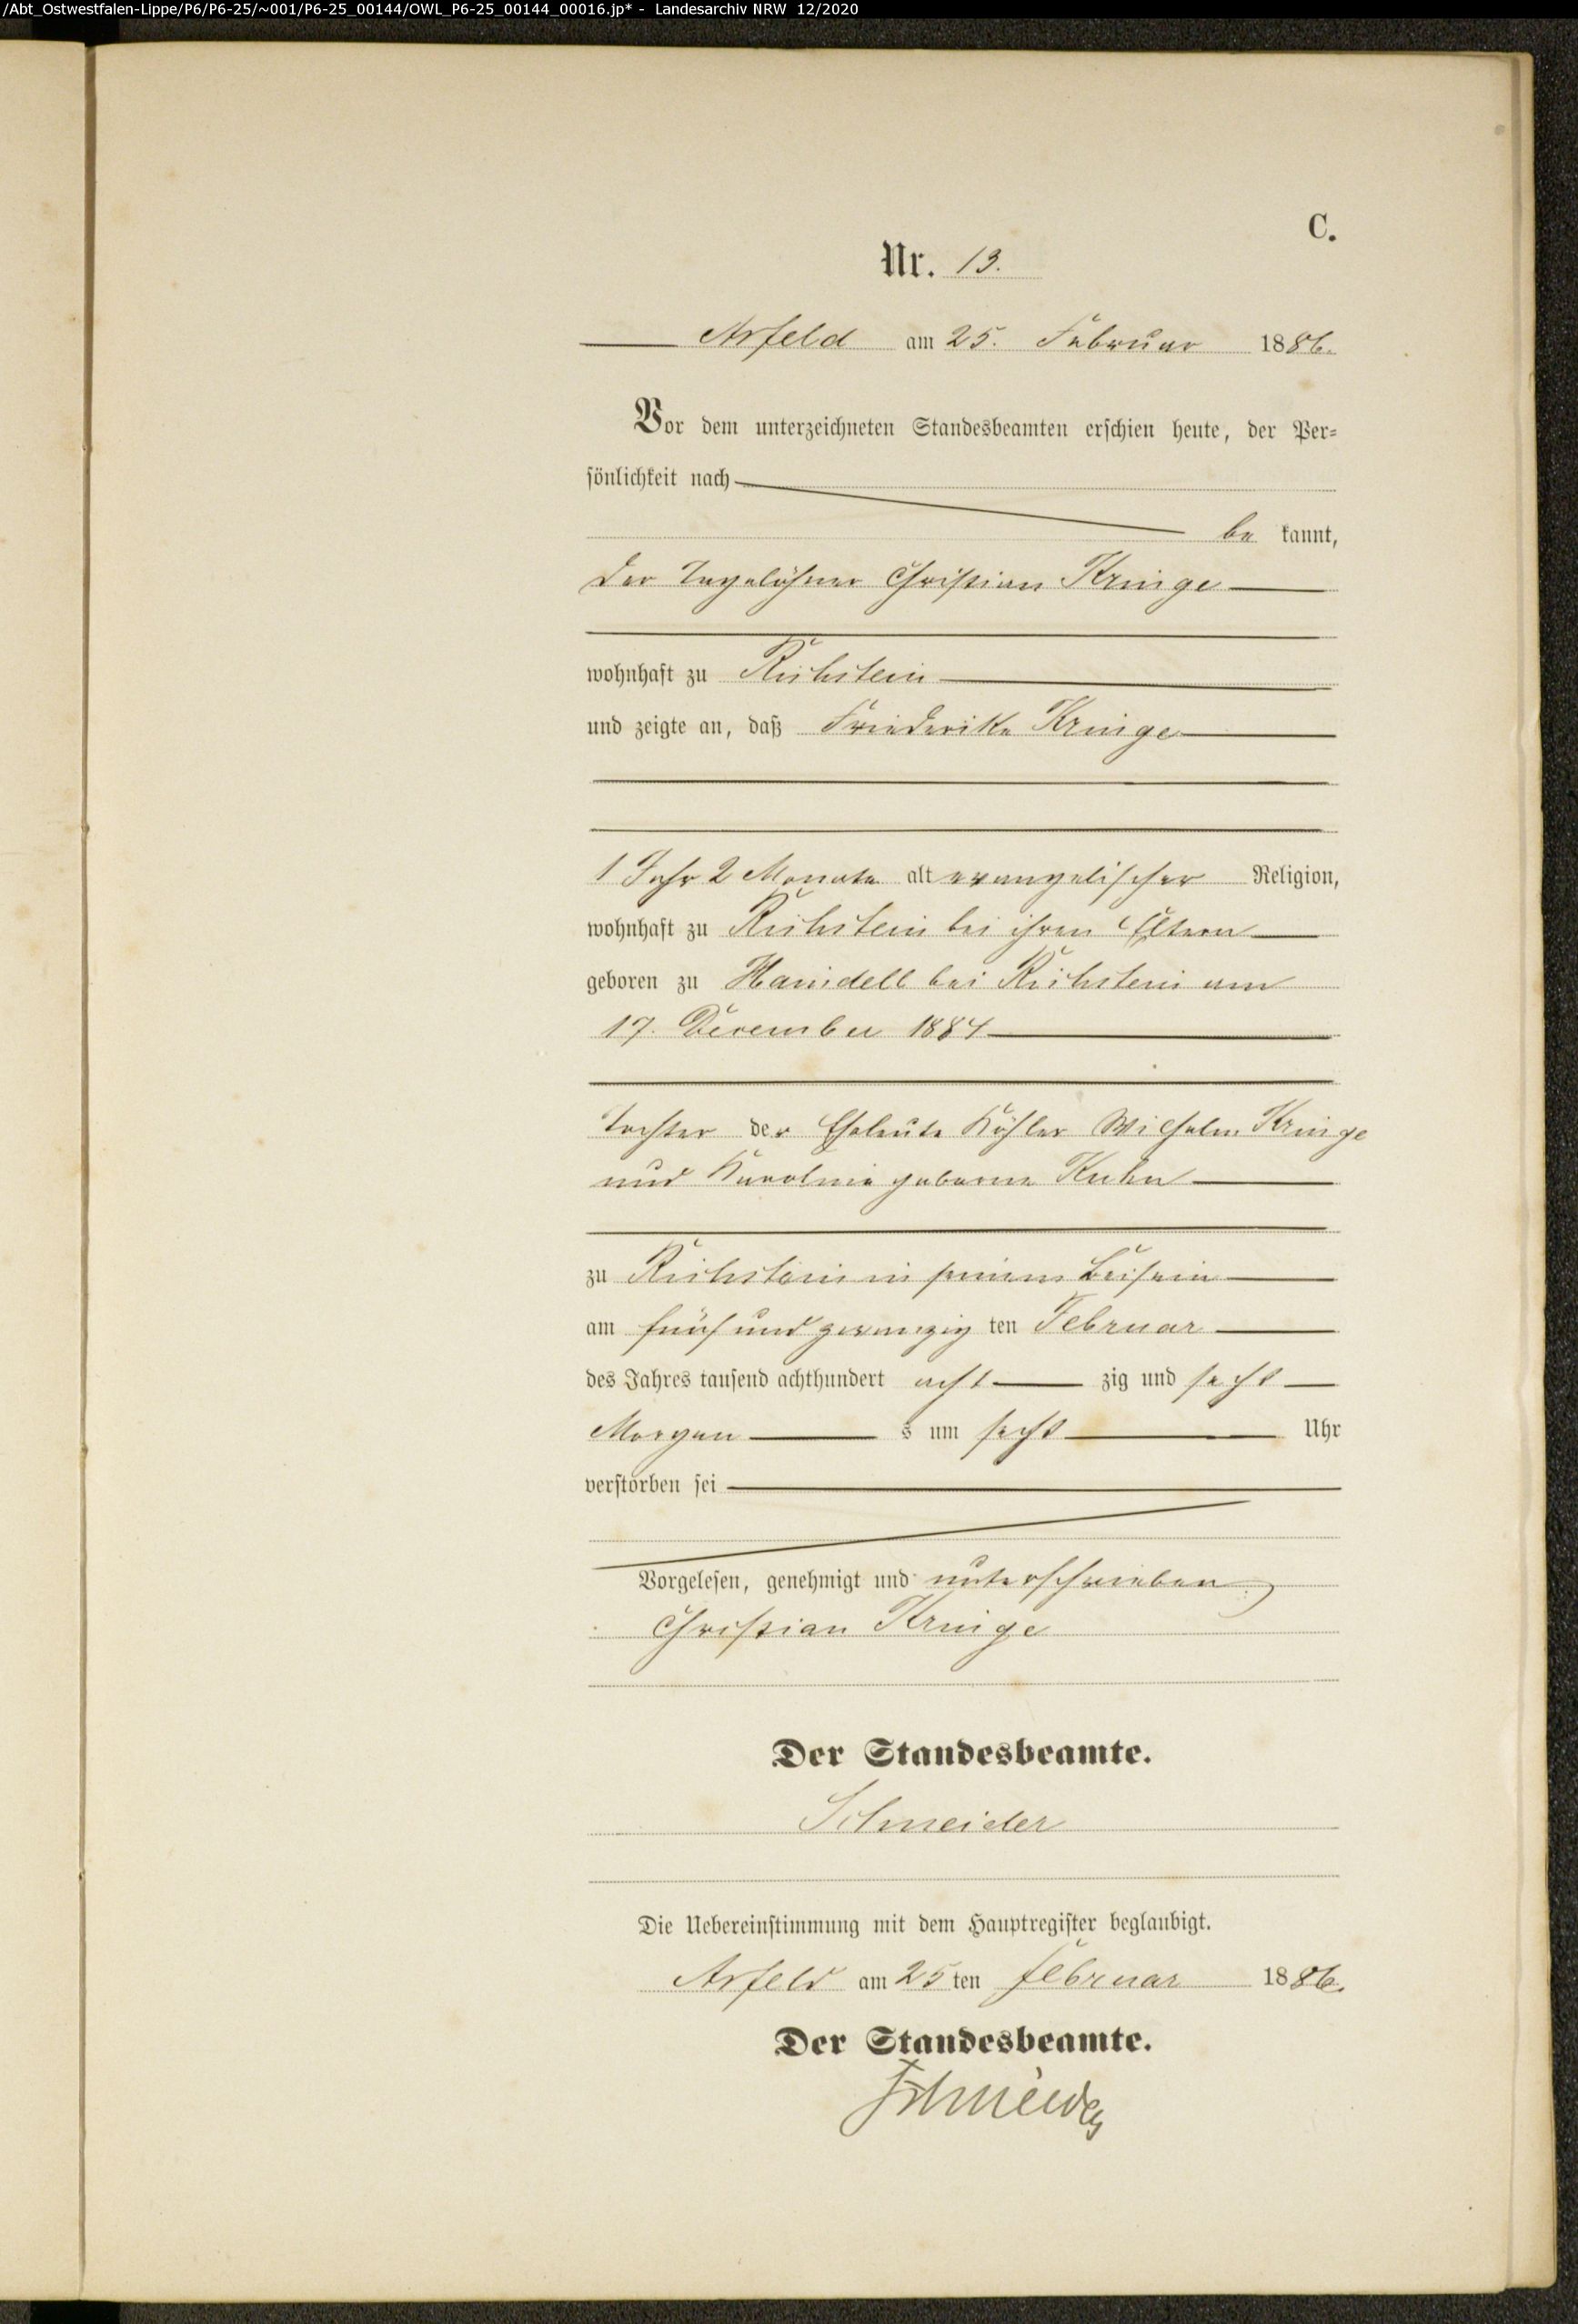 /Abt_Ostwestfalen-Lippe/P6/P6-25/~001/P6-25_00144/OWL_P6-25_00144_00016.jp* - Landesarchiv NRW 12/2020
C.
Nr. 13.
Arfeld am 25. Februar 1886.
Vor dem unterzeichneten Standesbeamten erschien heute, der Per=
sönlichkeit nach
be kannt,
der Tagelöhner Christian Kringe
wohnhaft zu Richstein
und zeigte an, daß Friederike Kringe
1 Jahr 2 Monate alt evangelischer Religion,
wohnhaft zu Richstein bei ihren Eltern
geboren zu bei Richstein am
17. December 1884
Tochter der Eheleute Köhler Wilhelm Kringe
und Karoline geborne
zu Richstein in seinem Beisein
am fünf und zwanzig ten Februar
des Jahres tausend achthundert acht zig und sechs
Morgen s um sechs Uhr
verstorben sei
Vorgelesen, genehmigt und unterschrieben
Christian Kringe
Der Standesbeamte.
Schneider
Die Uebereinstimmung mit dem Hauptregister beglaubigt.
Arfeld am 25 ten Februar 1886.
Der Standesbeamte.
Schneider